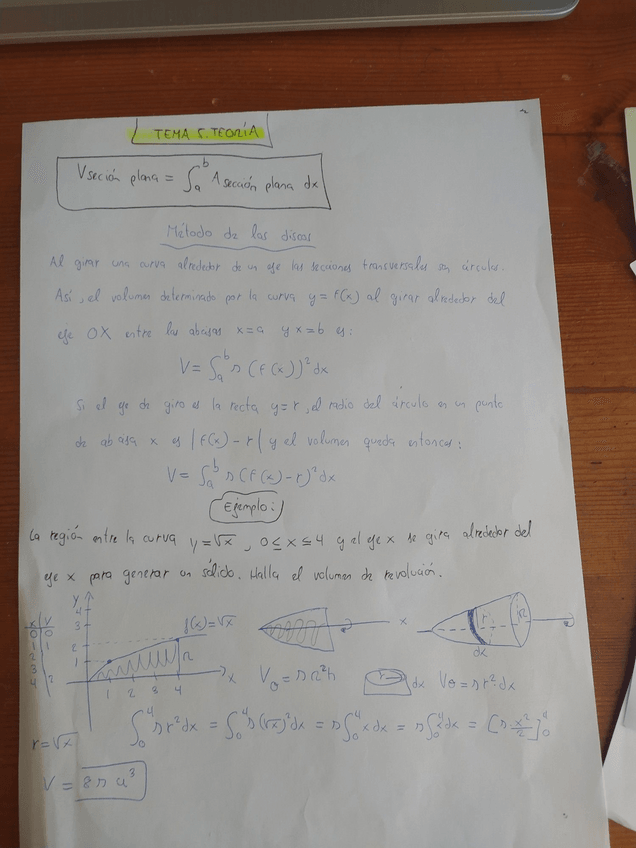 TEMA 5. TEORÍA
V seción plana = ∫ₐᵇ A sección plana dx
Método de los discos
Al girar una curva alrededor de un eje las secciones transversales son círculos.
Así, el volumen determinado por la curva y = f(x) al girar alrededor del
eje OX entre las abcisas x=a y x=b es:
V = ∫ₐᵇ π (f(x))² dx
Si el eje de giro es la recta y=r, el radio del círculo en un punto
de abcisa x es |f(x) - r| y el volumen queda entonces:
V = ∫ₐᵇ π (f(x) - r)² dx
Ejemplo:
La región entre la curva y = √x, 0 ≤ x ≤ 4 y el eje x se gira alrededor del
eje x para generar un sólido. Halla el volumen de revolución.
x y
0 0
1 1
2
3
4 2
y
4
3
2
1
1 2 3 4 x
f(x) = √x
R
x
r
R
dx
V = π R² h
r
dx
V = π r² · dx
r = √x
∫₀⁴ π r² dx = ∫₀⁴ π (√x)² dx = π ∫₀⁴ x dx = π ∫₀⁴ x dx = [π x²/2]₀⁴
V = 8π u³